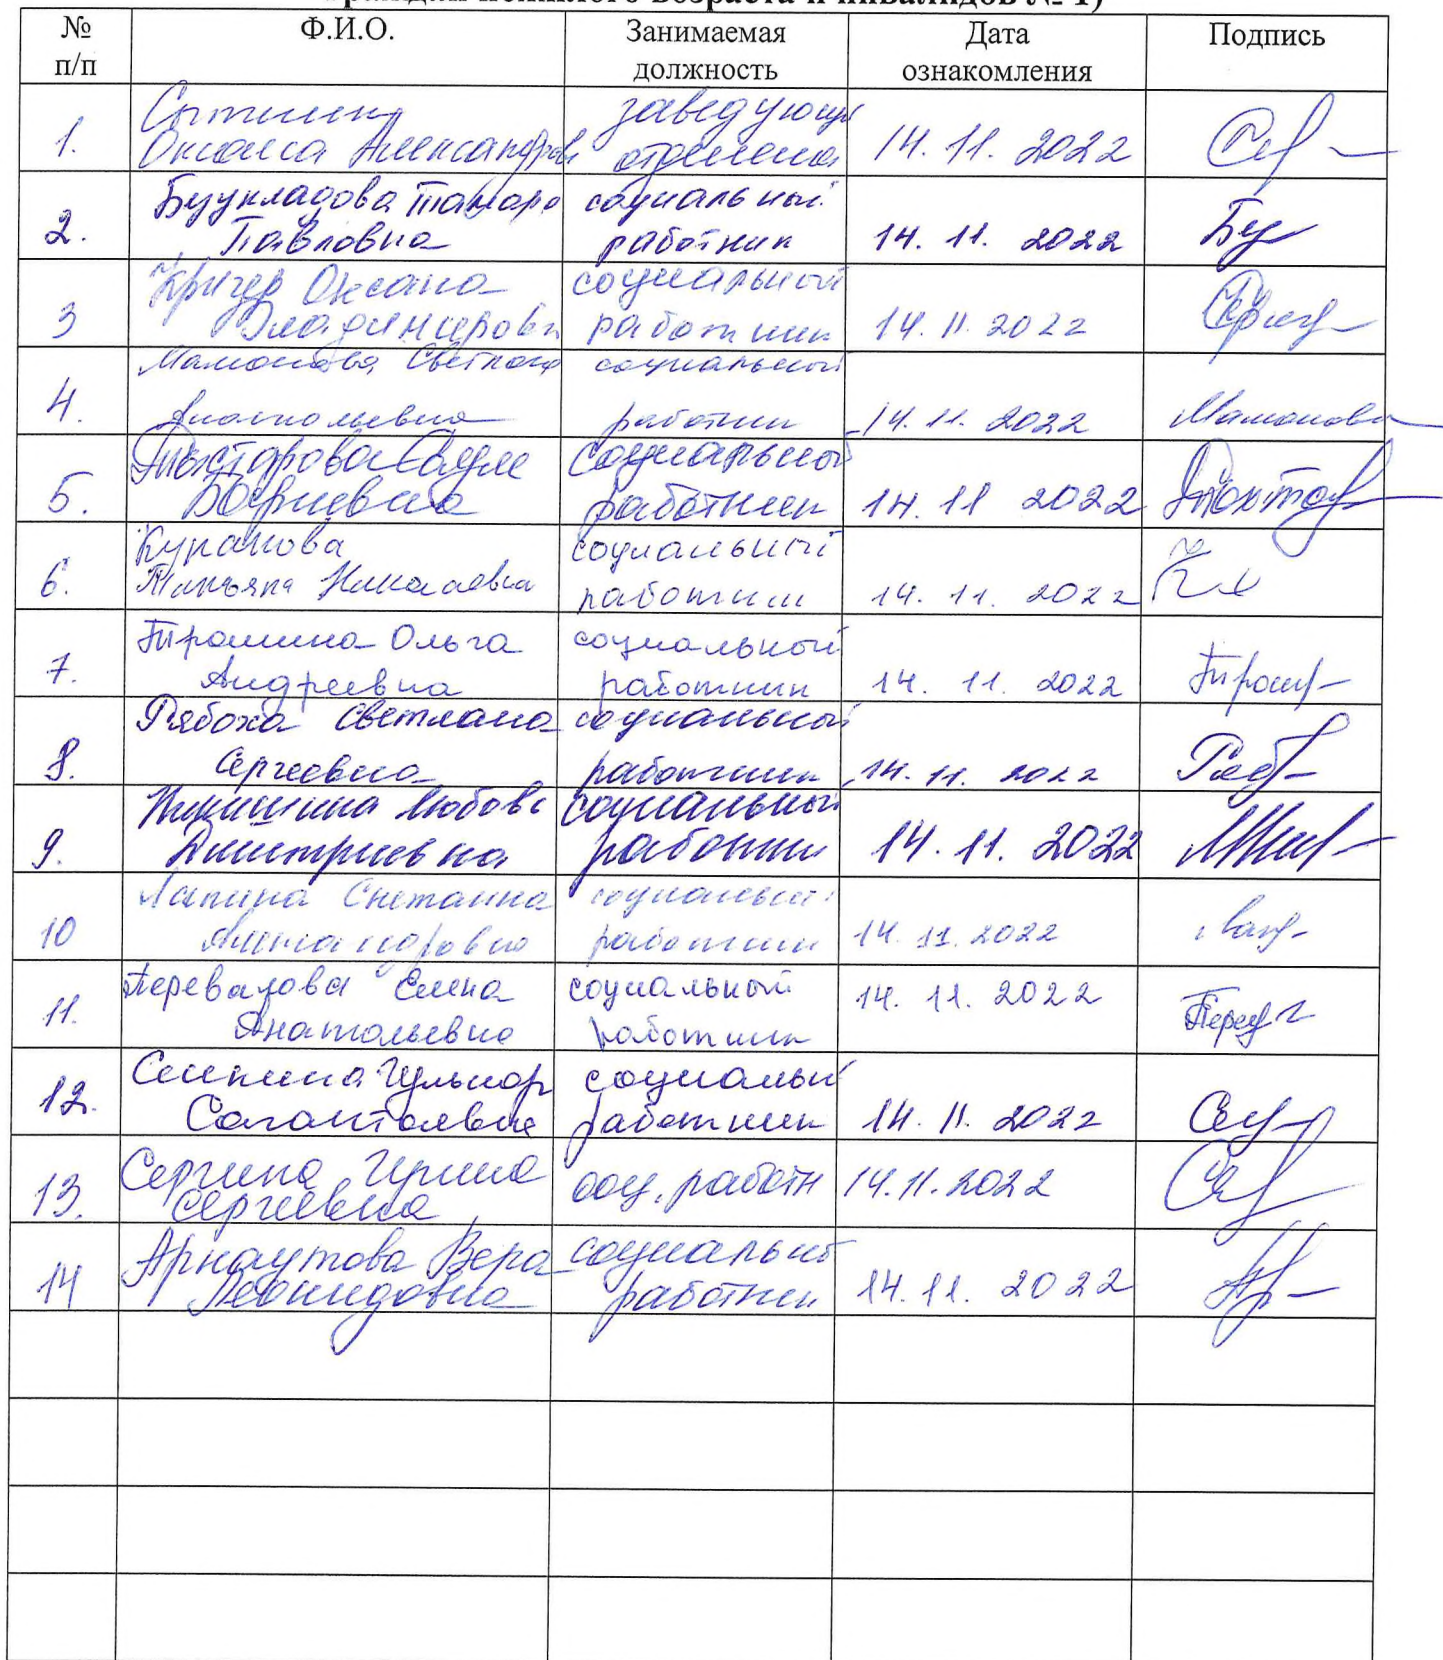 возраста и инвалидов № 1)
№ п/п Ф.И.О. Занимаемая должность Дата ознакомления Подпись
1. Оксана Александров заведующ отделения 14. 11. 2022
2. Тамара Павловна социальный работник 14. 11. 2022 Бу
3 Кригер Оксана Владимировн социальный работник 14. 11. 2022
4. Мамонова Светлана Анатольевна социальный работник 14. 11. 2022 Мамонова
5. социальный работник 14. 11 2022
6. Татьяна Николаевна социальный работник 14. 11. 2022
7. Трошина Ольга Андреевна социальный работник 14. 11. 2022
8. Рябоха Светлана Сергеевна социальный работник 14. 11. 2022 Ряб
9. Любовь Дмитриевна социальный работник 14. 11. 2022
10 Лапина социальный работник 14. 11. 2022
11. Перевалова Елена Анатольевна социальный работник 14. 11. 2022
12. Гульнар социальн работник 14. 11. 2022
13. Сергина Ирина Сергеевна соц. работн 14. 11. 2022
14 Арнаутова Вера Леонидовна социальный работник 14. 11. 2022 Ар